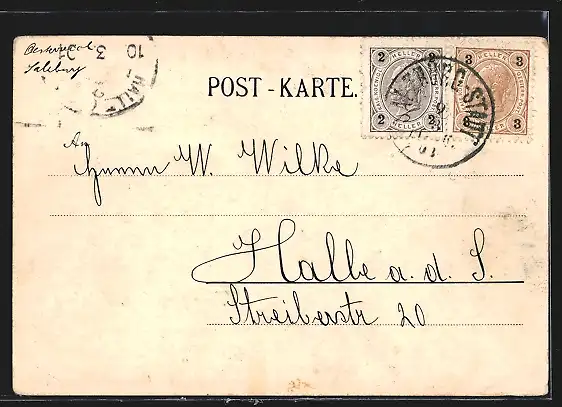 Salzburg
10 3
HALLE
POST-KARTE.
2 HELLER 2
2 HELLER 2
3 HELLER 3
3 HELLER 3
SALZBURG-STADT
An
Herrn W. Wilke
Halle a. d. S.
Streiberstr 20